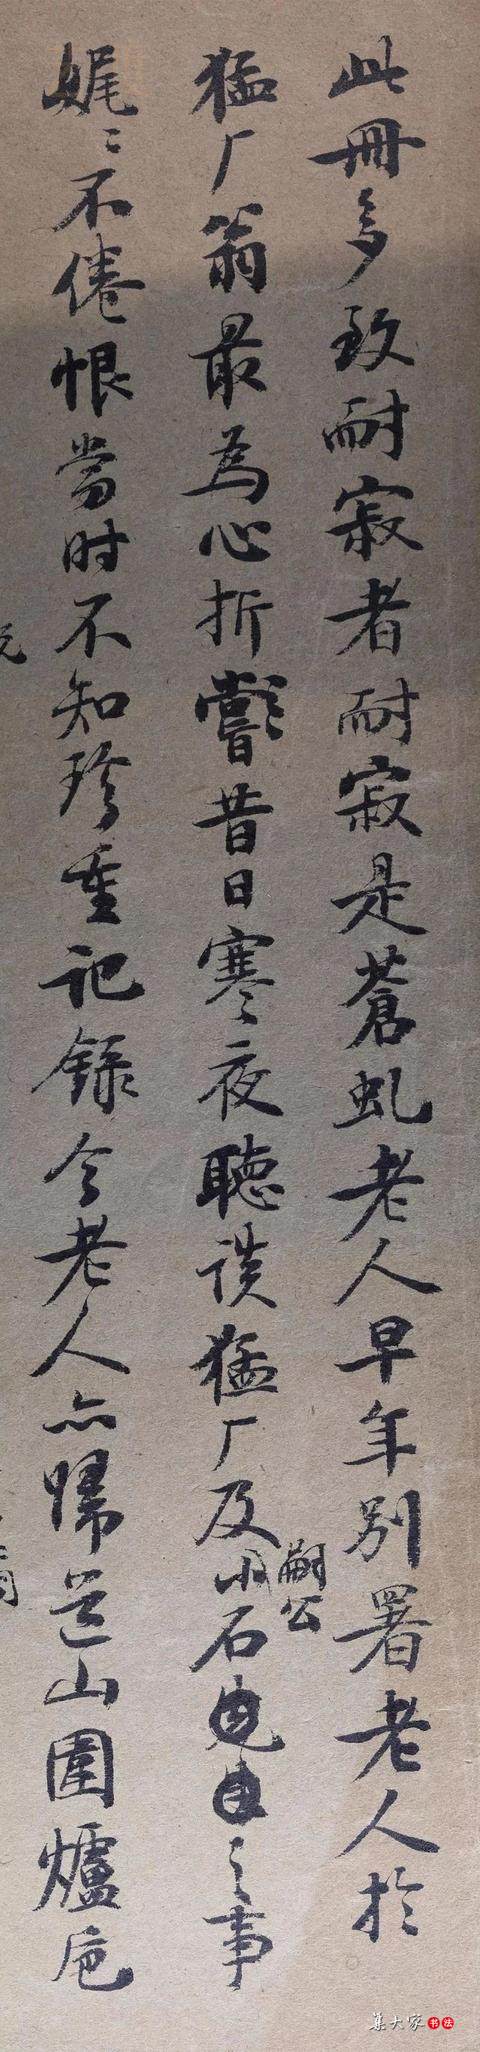 此冊多致耐寂者耐寂是蒼虬老人早年別署老人於
猛厂翁最為心折嘗昔日寒夜聽談猛厂及小石嗣公之事
娓〻不倦恨當时不知珍重記錄今老人亦歸道山圍爐
集大家书法